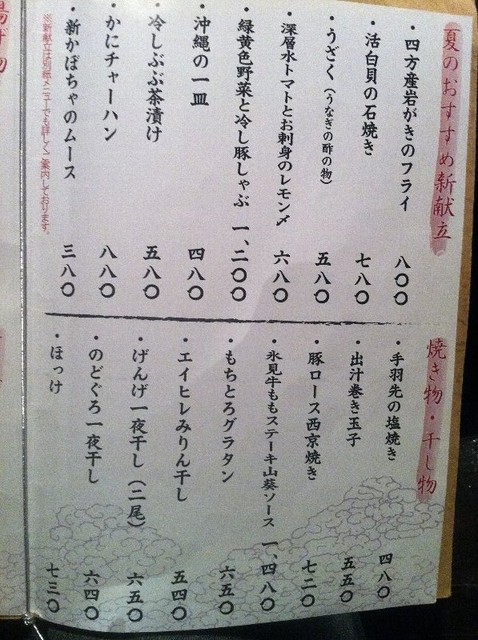 夏のおすすめ新献立
・四方産岩がきのフライ 八〇〇
・活白貝の石焼き 七八〇
・うざく(うなぎの酢の物) 五八〇
・深層水トマトとお刺身のレモン〆 六八〇
・緑黄色野菜と冷し豚しゃぶ 一、二〇〇
・沖縄の一皿 四八〇
・冷しぶぶ茶漬け 五八〇
・かにチャーハン 八八〇
・新かぼちゃのムース 三八〇
※新献立は別紙メニューでも詳しくご案内しております。
焼き物・干し物
・手羽先の塩焼き 四八〇
・出汁巻き玉子 五五〇
・豚ロース西京焼き 七二〇
・氷見牛ももステーキ山葵ソース 一、四八〇
・もちとろグラタン 六五〇
・エイヒレみりん干し 五四〇
・げんげ一夜干し(二尾) 六五〇
・のどぐろ一夜干し 六四〇
・ほっけ 七三〇
揚げ物